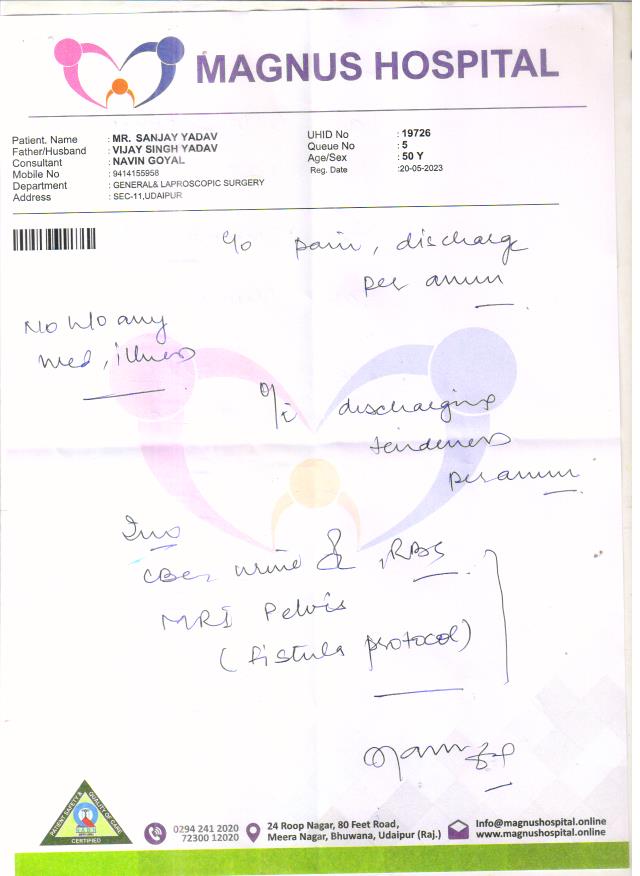 MAGNUS HOSPITAL
Patient. Name : MR. SANJAY YADAV
Father/Husband : VIJAY SINGH YADAV
Consultant : NAVIN GOYAL
Mobile No : 9414155958
Department : GENERAL& LAPROSCOPIC SURGERY
Address : SEC-11,UDAIPUR
UHID No : 19726
Queue No : 5
Age/Sex : 50 Y
Reg. Date :20-05-2023
c/o pain, discharge
per anum
No h/o any
med, illness
o/e discharging
tenderness
per anum
Inv
CBC, urine , RBS
MRI Pelvis
(fistula protocol)
PATIENT SAFETY & QUALITY OF CARE
CERTIFIED
0294 241 2020
72300 12020
24 Roop Nagar, 80 Feet Road,
Meera Nagar, Bhuwana, Udaipur (Raj.)
Info@magnushospital.online
www.magnushospital.online